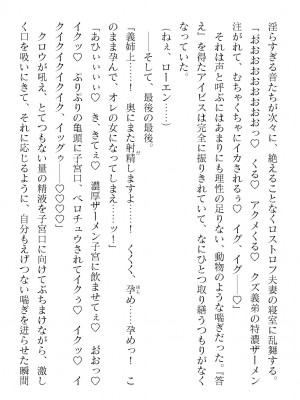 淫らすぎる音たちが次々に、絶えることなくロストロフ夫妻の寝室に乱舞する。
「おおおおおおおおっ♡　くる♡　アクメくる♡　クズ義弟の特濃ザーメン
注がれて、むちゃくちゃにイカされるぅ♡　イグ、イグー♡」
それは声と呼ぶにはあまりにも理性の足りない、動物のような喘ぎだった。『答
え』を得たアイビスは完全に振りきれていて、なにひとつ取り繕うつもりがなく
なっていた。
(ねぇ、ローエン…)
――そして、最後の最後。
「義姉上…！　奥にまた射精しますよ…！　くくく、孕め…孕めっ！　こ
のまま孕んで、オレの女になってしまえ……ッ！」
「あひぃぃぃぃ♡　き、きてぇ♡　濃厚ザーメン子宮に飲ませてぇ♡　おおっ♡
イクッ♡　ぷりぷりの亀頭に子宮口、ベロチュウされてイクぅ♡　イクッ♡　イ
クイクイクイクイク、イッグゥ――♡♡♡」
クロウが吼え、とてつもない量の精液を子宮口に向けてぶちまけながら、激し
く口を吸いにきて、それに応じるように、自分もえげつない喘ぎを迸らせた瞬間